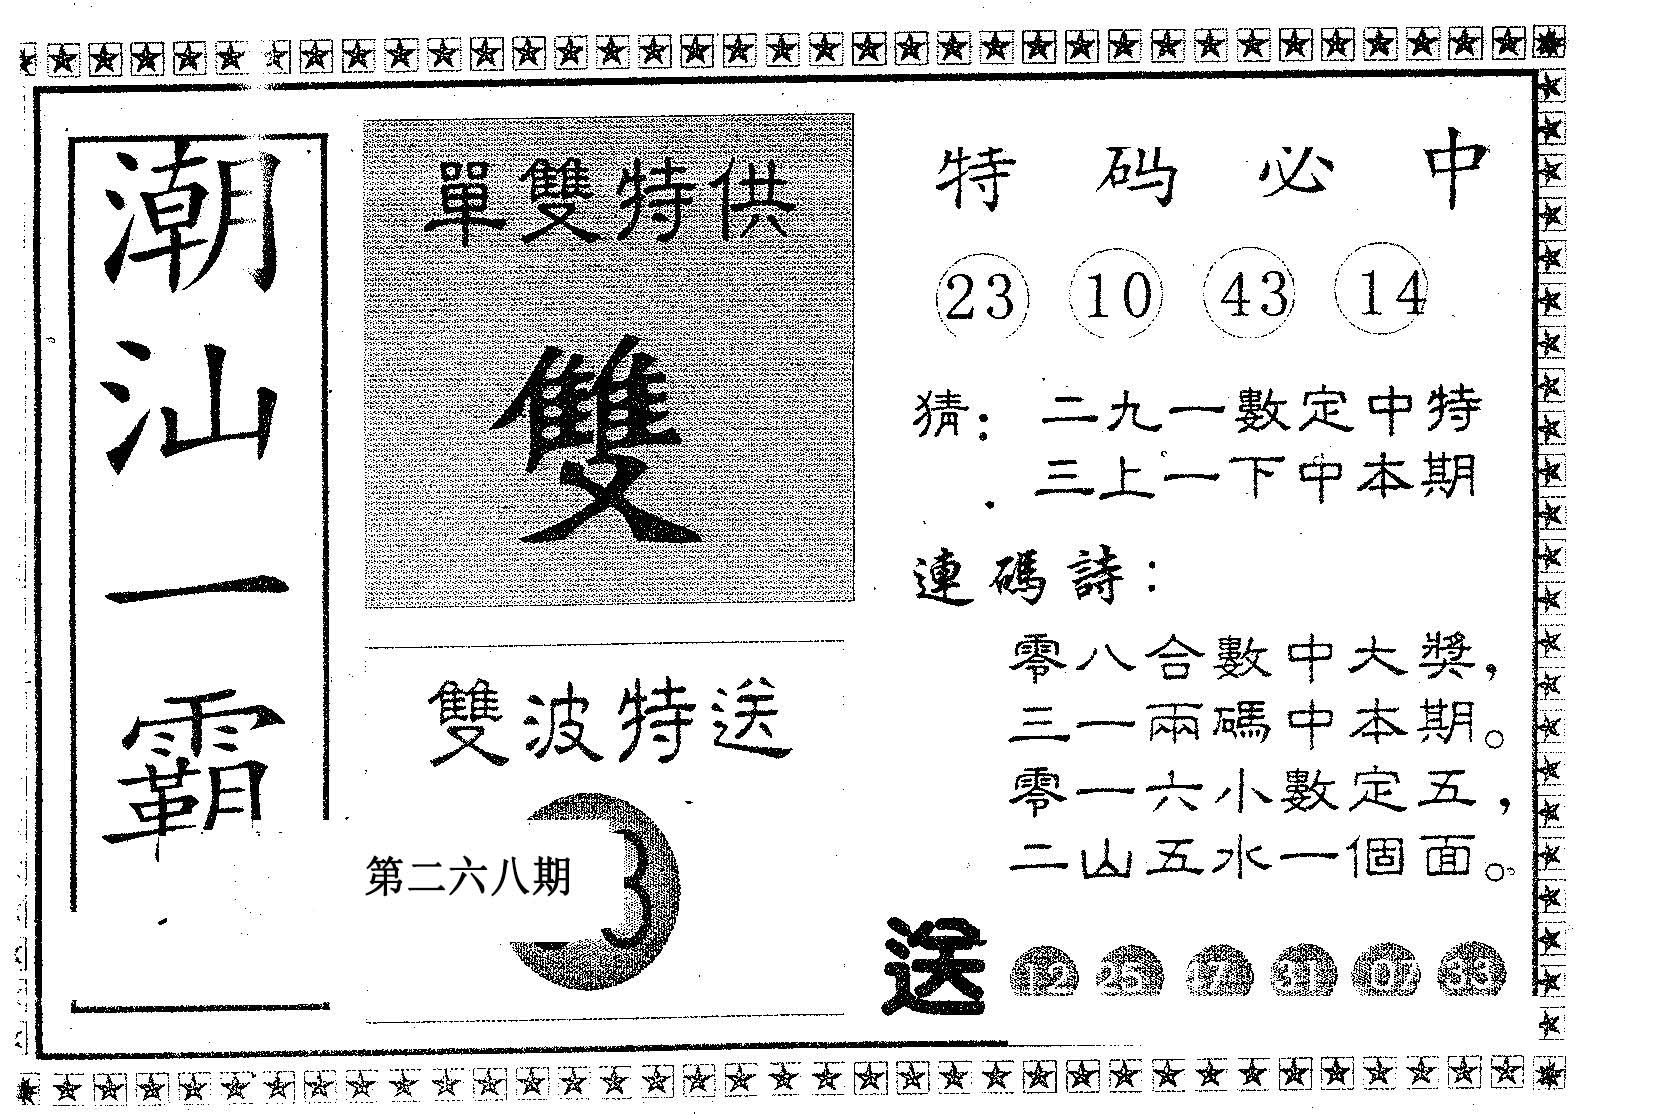 潮汕一霸
單雙特供
雙
雙波特送
第二六八期
特码必中
23 10 43 14
猜：二九一數定中特
三上一下中本期
連碼詩：
零八合數中大獎，
三一兩碼中本期。
零一六小數定五，
二山五水一個面。
送 12 25 17 31 07 33